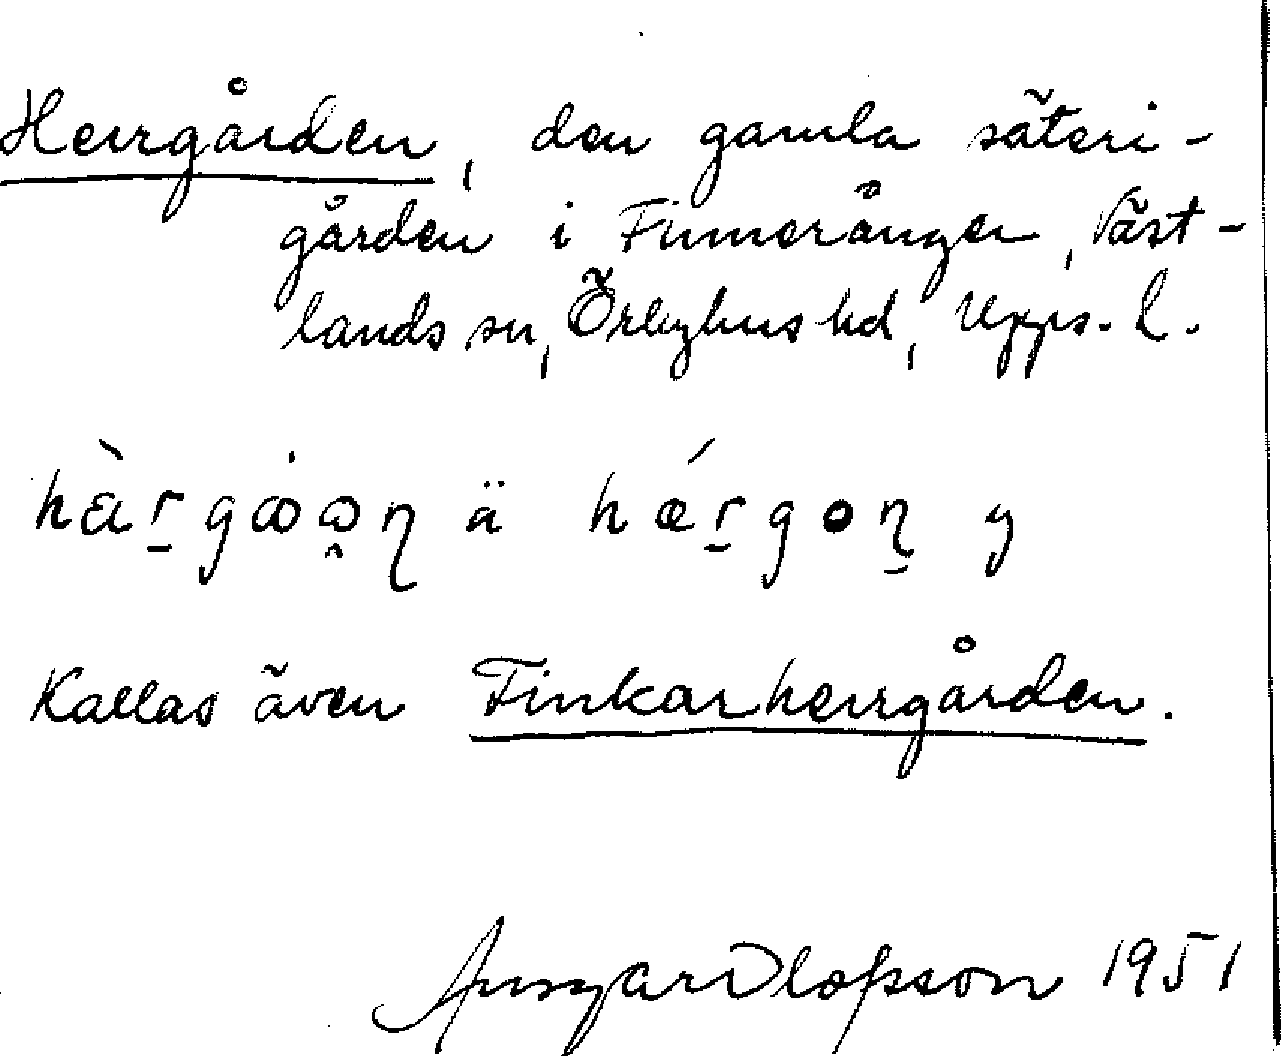 Herrgården, den gamla säteri-
gården i Finnerånger, Väst-
lands sn, Örbyhus hd, Upps. l.
ä y
Kallas även Finkarherrgården.
Ansgar Olofsson 1951